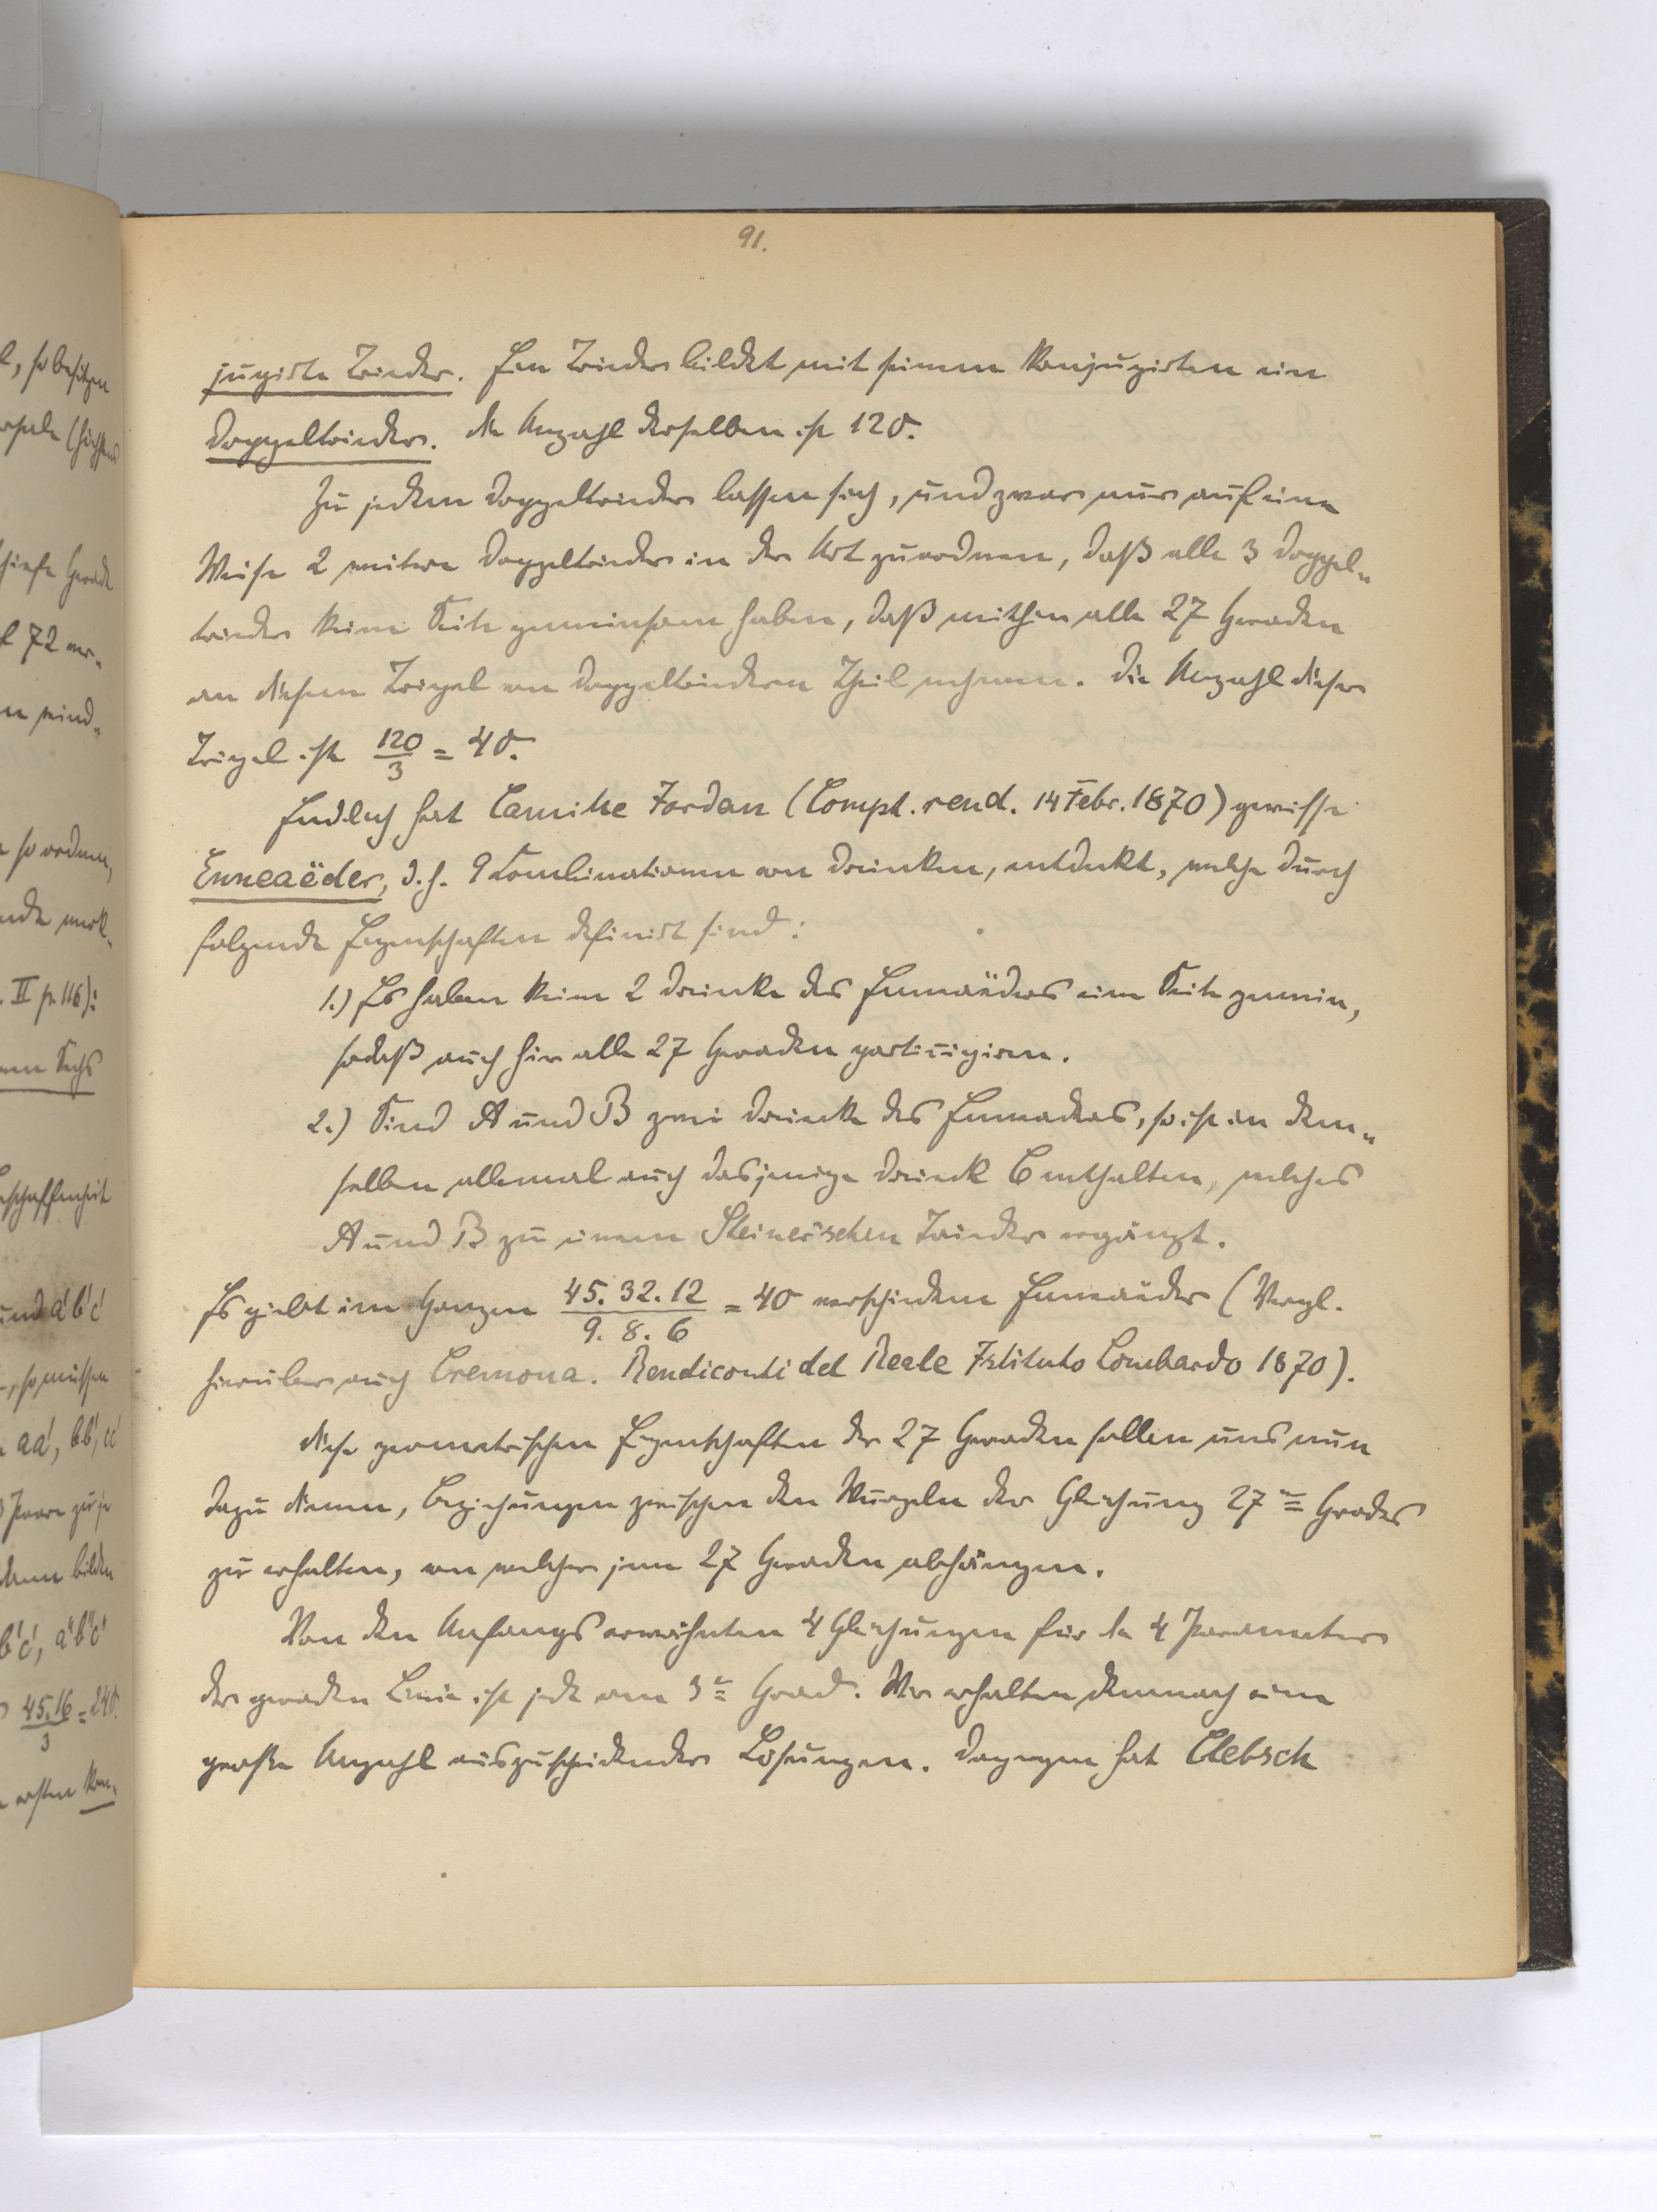 91.
jugirte Trieder. Ein Trieder bildet mit seinem Konjugirten ein
Doppeltrieder. Die Anzahl derselben ist 120.
Zu jedem Doppeltrieder lassen sich, und zwar nur auf eine
Weise 2 weitere Doppeltrieder in der Art zuordnen, daß alle 3 Doppel„
trieder keine Seite gemeinsam haben, daß mithin alle 27 Geraden
an diesem Tripel von Doppeltriedern Theil nehmen. Die Anzahl dieser
Tripel ist 120/3 = 40.
Endlich hat Camille Jordan (Compt. rend. 14 Febr. 1870) gewisse
Enneaëder, d. h. 9 Combinationen von Dreiecken, entdeckt, welche durch
folgende Eigenschaften definirt sind:
1.) Es haben keine 2 Dreiecke des Enneaëders eine Seite gemein,
sodaß auch hier alle 27 Geraden participiren.
2.) Sind A und B zwei Dreiecke des Enneaders, so ist in dem„
selben allemal auch dasjenige Dreieck C enthalten, welches
A und B zu einem Steiner'schen Trieder ergänzt.
Es giebt im Ganzen 45. 32. 12 / 9. 8. 6 = 40 verschiedene Enneaëder (Vergl.
hierüber auch Cremona. Rendiconti del Reale Istituto Lombardo 1870).
Diese geometrischen Eigenschaften der 27 Geraden sollen uns nun
dazu dienen, Beziehungen zwischen den Wurzeln der Gleichung 27ten Grades
zu erhalten, von welcher jene 27 Geraden abhängen.
Von den Anfangs erwähnten 4 Gleichungen für die 4 Parameter
der geraden Linie ist jede vom 3ten Grad. Wir erhalten demnach eine
große Anzahl auszuscheidender Lösungen. Dagegen hat Clebsch